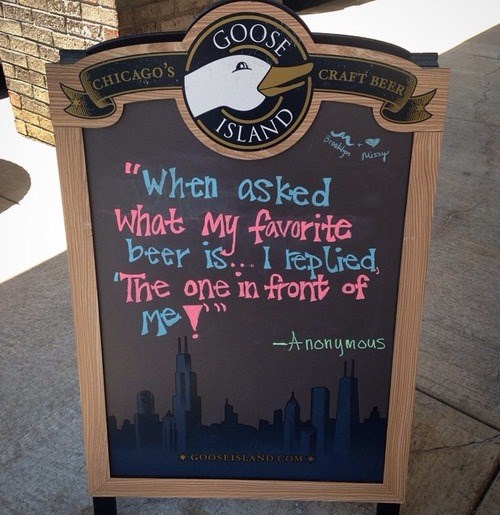 GOOSE
CHICAGO'S
CRAFT BEER
ISLAND
Brooklyn + Missy
"When asked
what My favorite
beer is... I replied,
'The one in front of
Me!'"
-Anonymous
GOOSEISLAND.COM